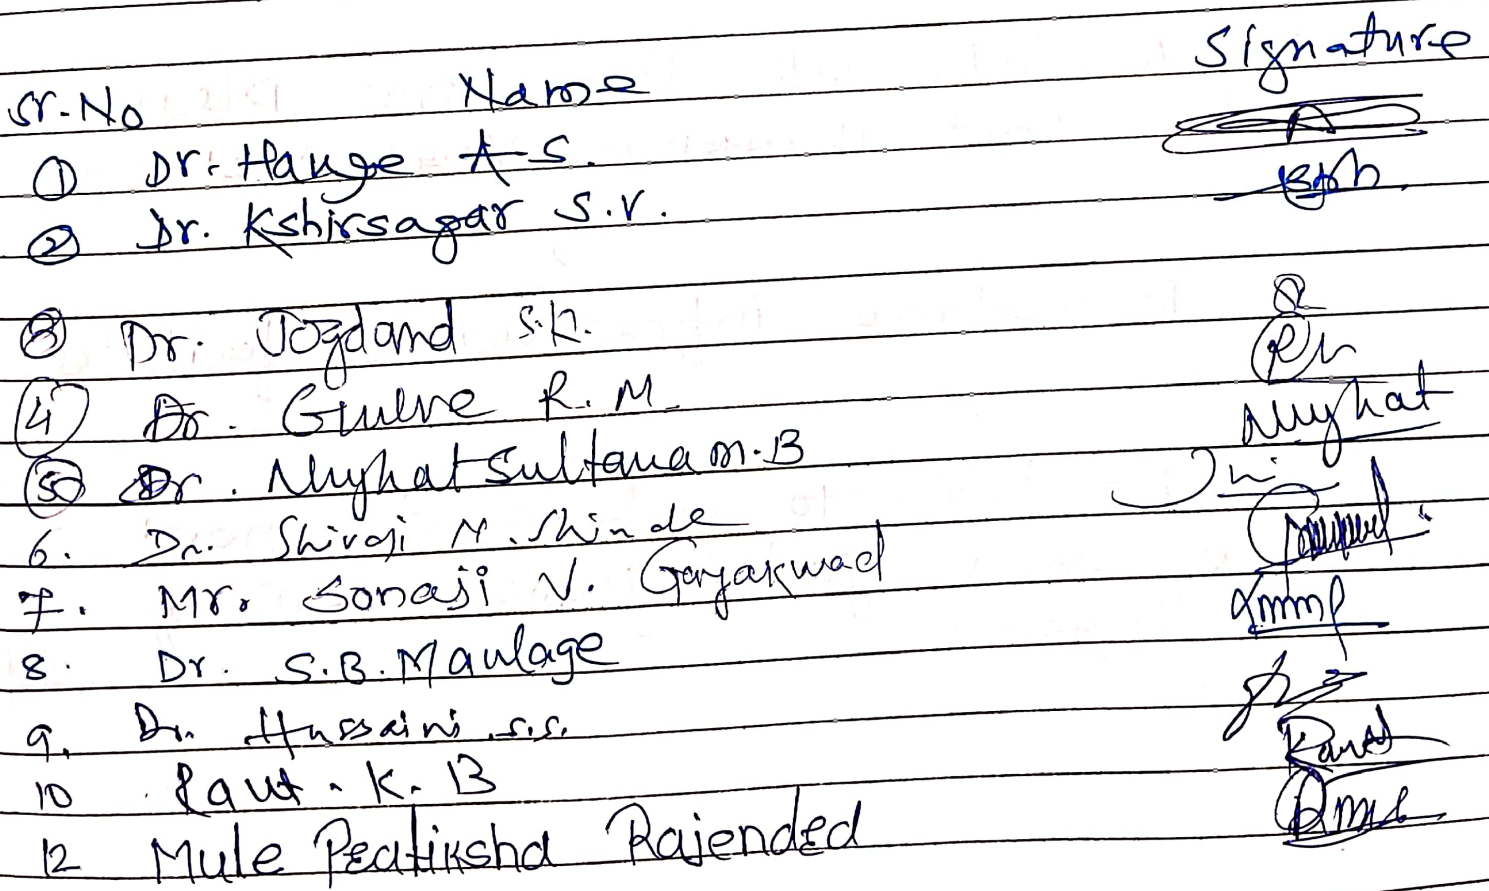 Sr. No Name Signature
① Dr. Hange A S.
② Dr. Kshirsagar S.V.
③ Dr. Jogdand S.K.
④ Dr. Gulve R. M.
⑤ Dr. Nuyhat Sultana M.B Nuyhat
6. Dr. Shivaji N. Shinde
7. Mr. Sonaji V. Gayakwad
8. Dr. S.B. Maulage
9. Dr. Hussaini S.S.
10 Raut. K. B Raut
12 Mule Peatiksha Rajended